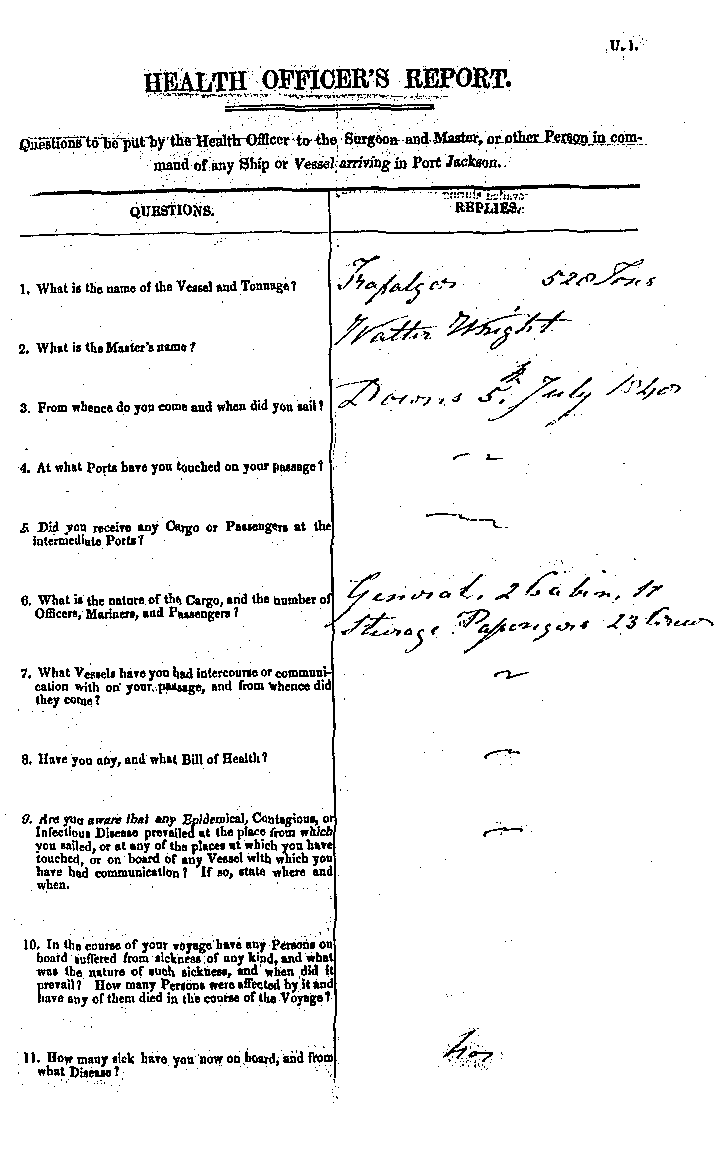 U. 1.
HEALTH OFFICER'S REPORT.
Questions to be put by the Health Officer to the Surgeon and Master, or other Person in com-
mand of any Ship or Vessel arriving in Port Jackson.
QUESTIONS.
REPLIES.
1. What is the name of the Vessel and Tonnage?
Trafalgar 528 Tons
2. What is the Master's name?
Walter Wright
3. From whence do you come and when did you sail?
Downs 5th July 1840
4. At what Ports have you touched on your passage?
5. Did you receive any Cargo or Passengers at the
intermediate Ports?
6. What is the nature of the Cargo, and the number of
Officers, Mariners, and Passengers?
General. 2 Cabin, 17
Sturage Passengers 23 Crew
7. What Vessels have you had intercourse or communi-
cation with on your passage, and from whence did
they come?
8. Have you any, and what Bill of Health?
9. Are you aware that any Epidemical, Contagious, or
Infectious Disease prevailed at the place from which
you sailed, or at any of the places at which you have
touched, or on board of any Vessel with which you
have had communication? If so, state where and
when.
10. In the course of your voyage have any Persons on
board suffered from sickness of any kind, and what
was the nature of such sickness, and when did it
prevail? How many Persons were affected by it and
have any of them died in the course of the Voyage?
11. How many sick have you now on board, and from
what Disease?